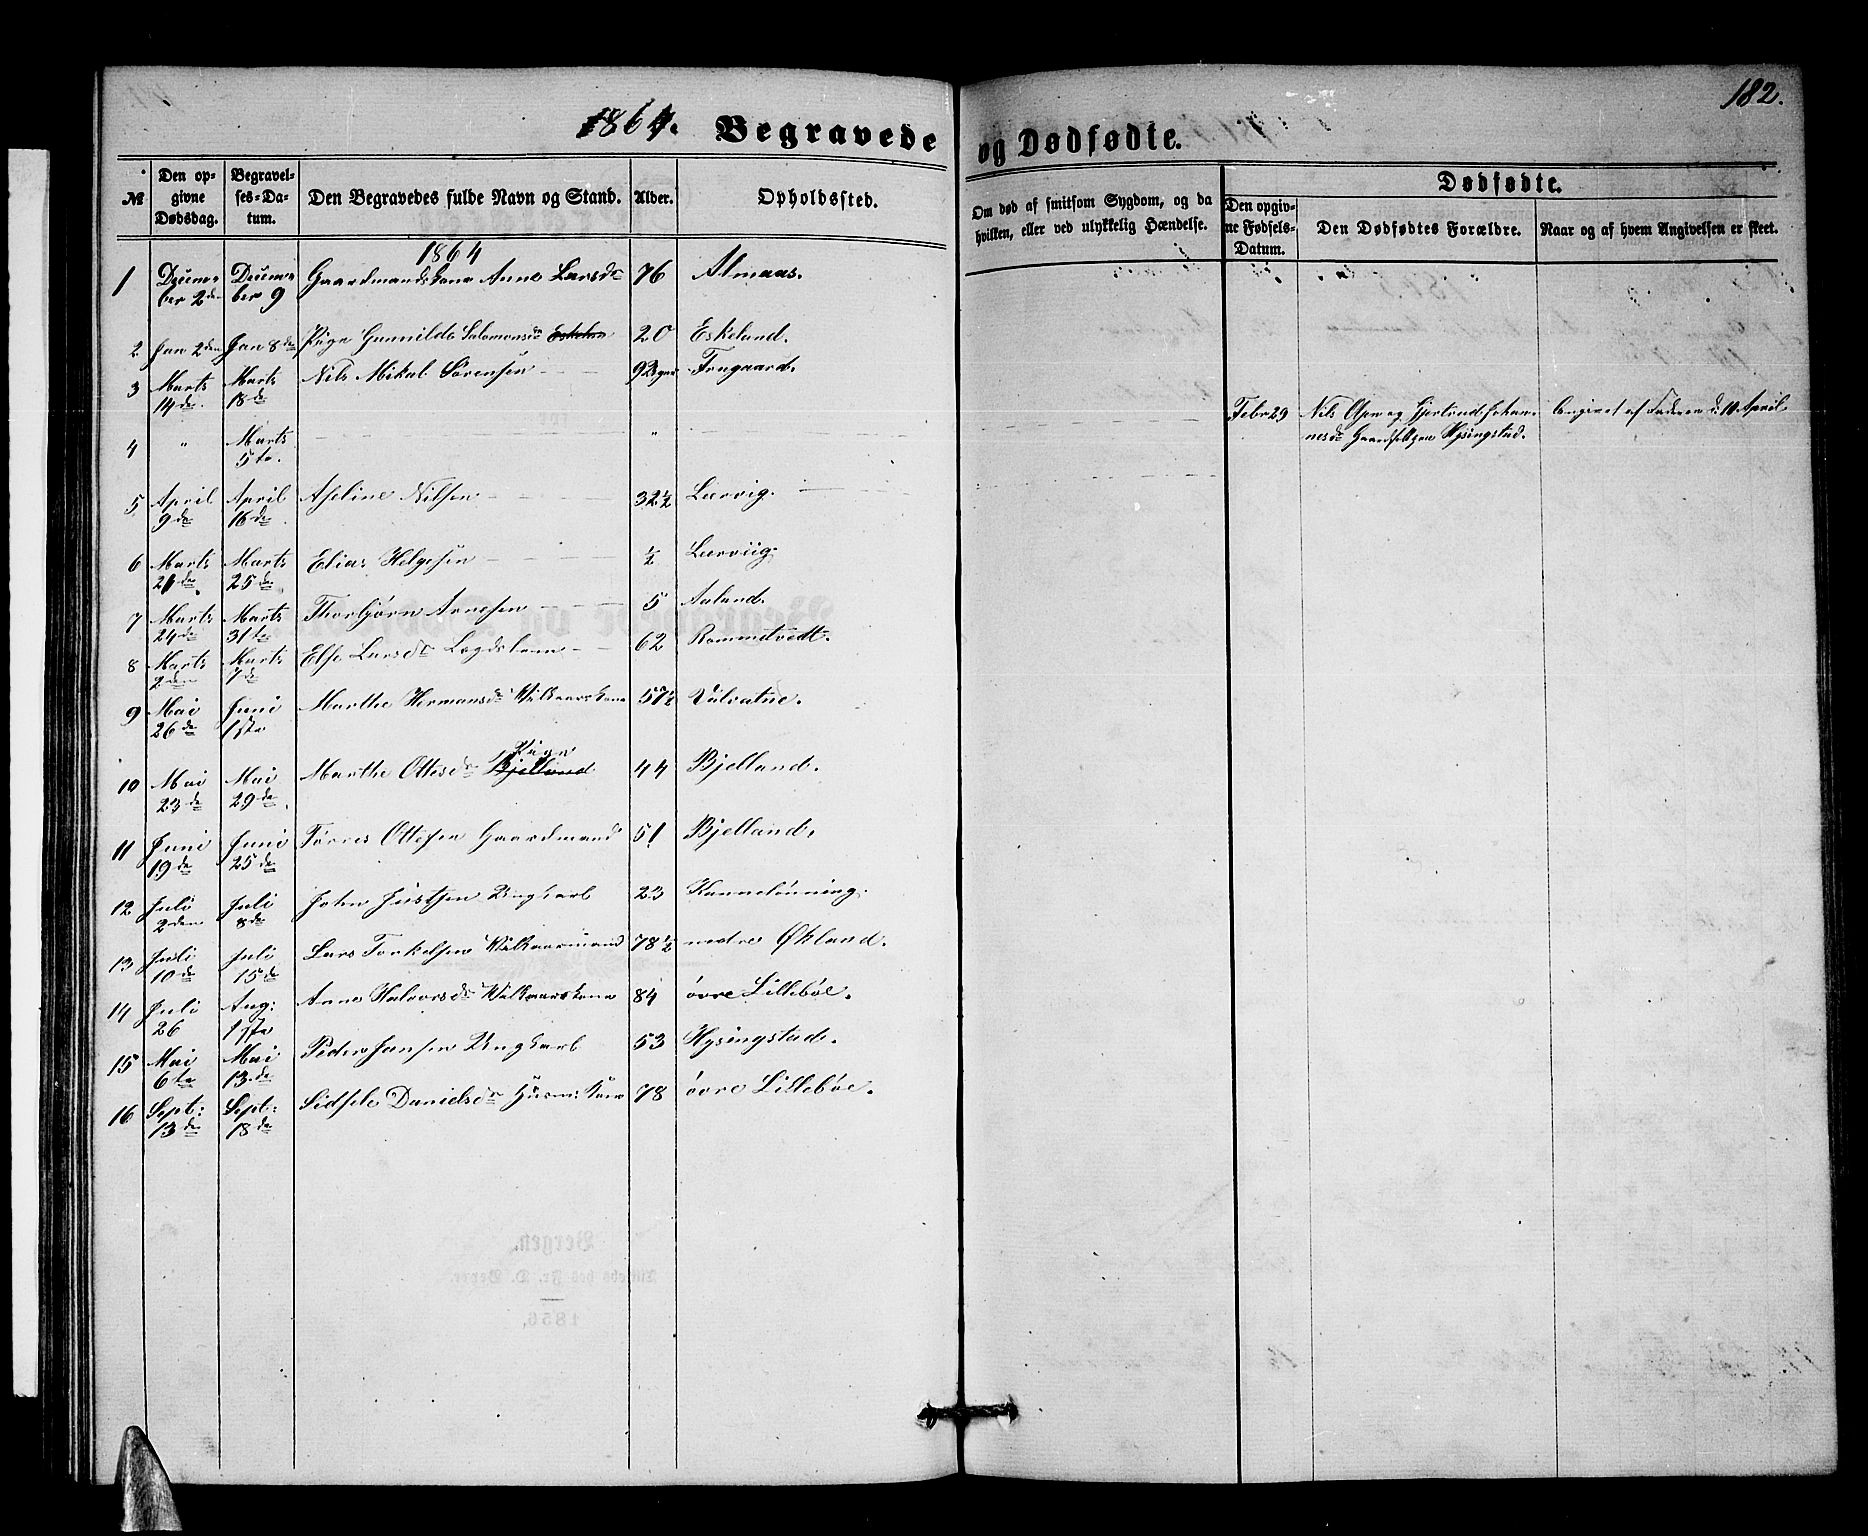 182.
1864. Begravede og Dødfødte.
№ Den opgivne Dødsdag. Begravelses-Datum. Den Begravedes fulde Navn og Stand. Alder. Opholdssted. Om død af smitsom Sygdom, og da hvilken, eller ved ulykkelig Hændelse. Dødfødte.
Den opgivne Fødsels-Datum. Den Dødfødtes Forældre. Naar og af hvem Angivelsen er skeet.
1864
1 December 2den December 9 Gaardmandskone Anne Larsdr 76 Almaas.
2 Jan 2den Jan 8de Pige Gunnilde Salomonsdr 20 Eskeland.
3 Marts 14de. Marts 18de Nils Mikal Sørensen 9 Frugaard.
4 " Marts 5te. " Febr 29 Nils Olsen og Gjertrud Johannesdr Hysingstad. Angivet af Faderen d: 10 April
5 April 9de April 16de Aseline Nilsen 32½ Lervig.
6 Marts 21de. Marts 25de Elias Helgesen ½ Lerviig.
7 Marts 24de Marts 31te Thorbjørn Arnesen 5 Aaland.
8 Marts 2den Marts 7de Else Larsdr Lægdslem 62 Rommetvedt.
9 Mai 26de Juni 1ste Marthe Hermansdr Vilkaarskone 57½ Valvatne.
10 Mai 23de Mai 29de. Marthe Ottesdr Bjelland Pige 44 Bjelland.
11 Juni 19de Juni 25de Tørres Ottesen Gaardmand 51 Bjelland.
12 Juli 2den Juli 8de John Justsen Ungkarl 23 Kannelønning.
13 Juli 10de Juli 15de Lars Torkelsen Vilkaarmand 78½ nedre Økland.
14 Juli 26 Aug: 1ste Anne Halvorsdr Vilkaarskone 84 øvre Lillebøe.
15 Mai 6te Mai 13de Peder Jansen Ungkarl 53 Hysingstad.
16 Sept: 13de Sept: 18de Sidsele Danielsdr Huusm: Kone 78 øvre Lillebøe.